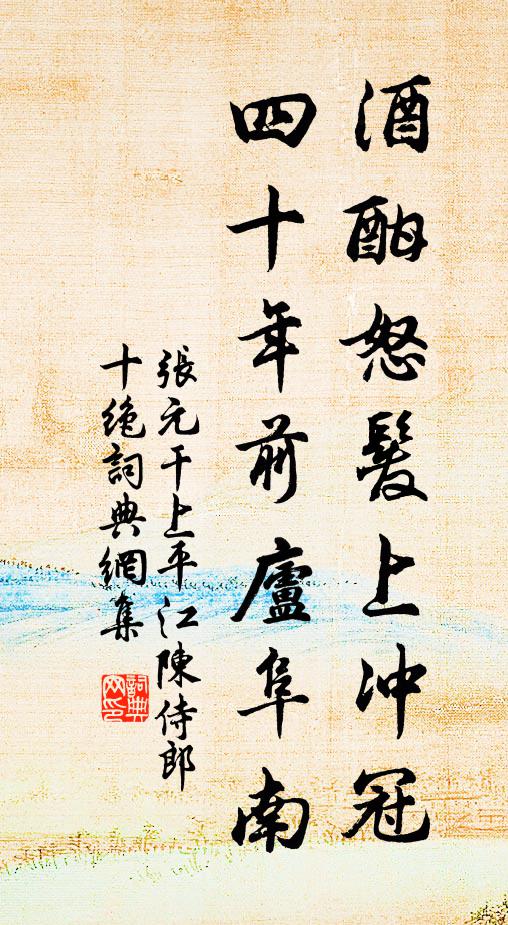 酒酣怒髮上冲冠
四十年前廬阜南
張元干上平江陳侍郎
十絶詞典網集
詞典网印